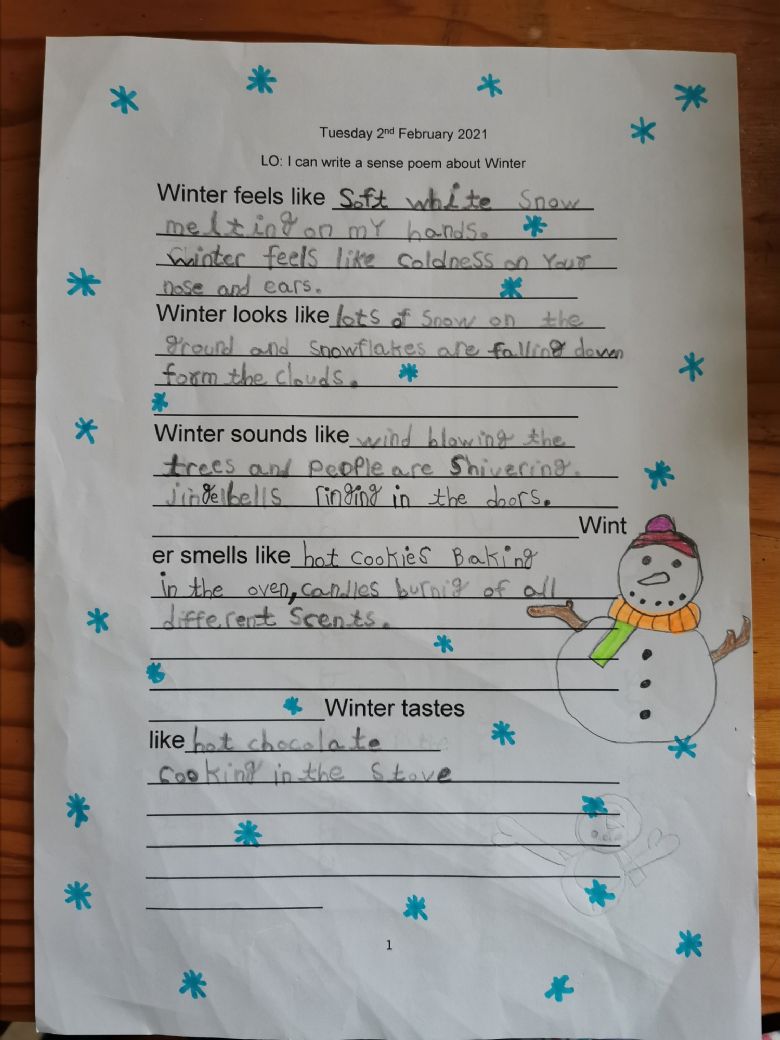 Tuesday 2nd February 2021
LO: I can write a sense poem about Winter
Winter feels like Soft white Snow
melting on my hands.
Winter feels like Coldness on Your
nose and ears.
Winter looks like lots of Snow on the
ground and snowflakes are falling down
form the clouds.
Winter sounds like wind blowing the
trees and People are Shivering.
jingelbells ringing in the doors.
Wint
er smells like hot cookies Baking
in the oven, candles burnig of all
different Scents.
Winter tastes
like hot chocolate
cooking in the Stove
1